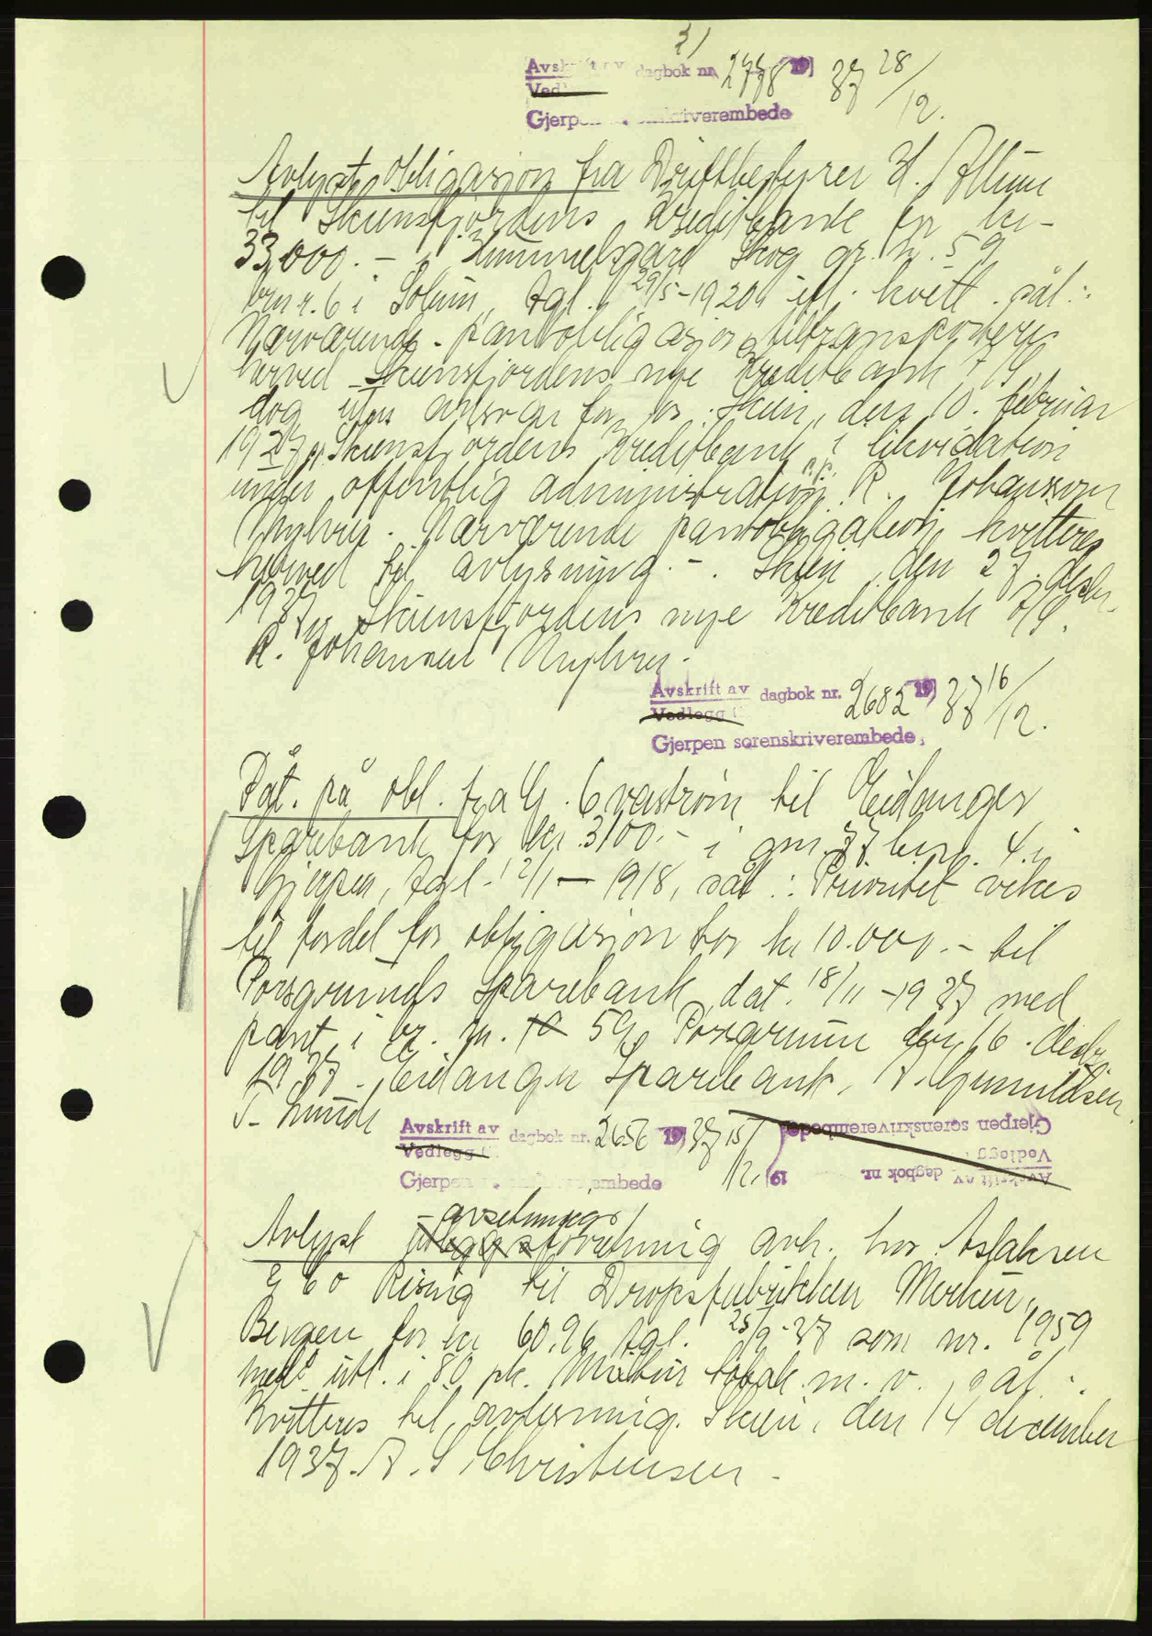 Avskrift av dagbok nr. 2778 19 37 28/12.
Vedlegg
Gjerpen sorenskriverembede
Avlyst obligasjon fra Driftbestyrer H.
til Skiensfjordens Kreditbank for kr.
33,000.- i Hummelsgard Skog gr. n. 59
brnr. 6 i Solum, tgl. 29/5-1920, kvitt. pål.:
Nærværende pantobligasjon transporteres
herved Skiensfjordens nye Kreditbank A/S,
dog uten ansvar for os. Skien, den 10. februar
1927, Skiensfjordens Kreditbank i likvidation
under offentlig administration p.p. R. Johansson
Myhren. Nærværende pantobligation kvitteres
herved til avlysning. -. Skien, den 27. desbr.
1937, Skiensfjordens nye Kreditbank A/S.
R. Johansen Myhren.
Avskrift av dagbok nr. 2682 19 37 16/12.
Vedlegg
Gjerpen sorenskriverembede,
Påt. på obl. fra G. til Eidanger
Sparebank for kr. 3100.- i gnr. 37 brn. 4 i
Gjerpen, tgl. 12/1 - 1918, sål.: Prioritet vikes
til fordel for obligasjon for kr 10.000.- til
Porsgrunds Sparebank, dat. 18/11 -1937 med
pant i br. n. 59, Porsgrunn den 16. desbr.
1937. Eidanger Sparebank, A. Gunnuldsen
T. Lunde
Avskrift av dagbok nr. 2656 19 37 15/12.
Vedlegg
Gjerpen sorenskriverembede
Avskrift av dagbok nr. 19
Vedlegg
Gjerpen sorenskriverembede
- avsetnings
Avlyst utleggsforretning avh. hos Aslaksen
& Co Rising til Dropsfabrikken Merkur,
Bergen for kr 60.96 tgl. 25/9-37 som nr. 1959
med utl. i 80 pk. tobak m. v., sål.:
Kvitteres til avlysning. Skien, den 14 december
1937. A. S. Christensen.